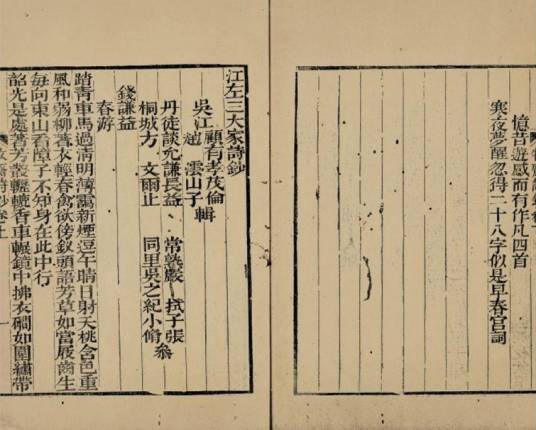 憶昔遊感而有作凡四首
寒夜夢醒忽得二十八字似是早春宮詞
江左三大家詩鈔
吳江
顧有孝茂倫
趙 雲山子
輯
丹徒談允謙長益
常熟嚴 拭子張
桐城方 文爾止
同里吳之紀小脩
叅
錢謙益
春游
踏青車馬過清明薄靄新煙逗午晴日射夭桃含色重
風和弱柳著衣輕春禽欲傍釵頭語芳草如當屐齒生
每向東山看障子不知身在此中行
韶光是處著芳叢轣轆香車輾鏡中拂衣礀如圍繡帶